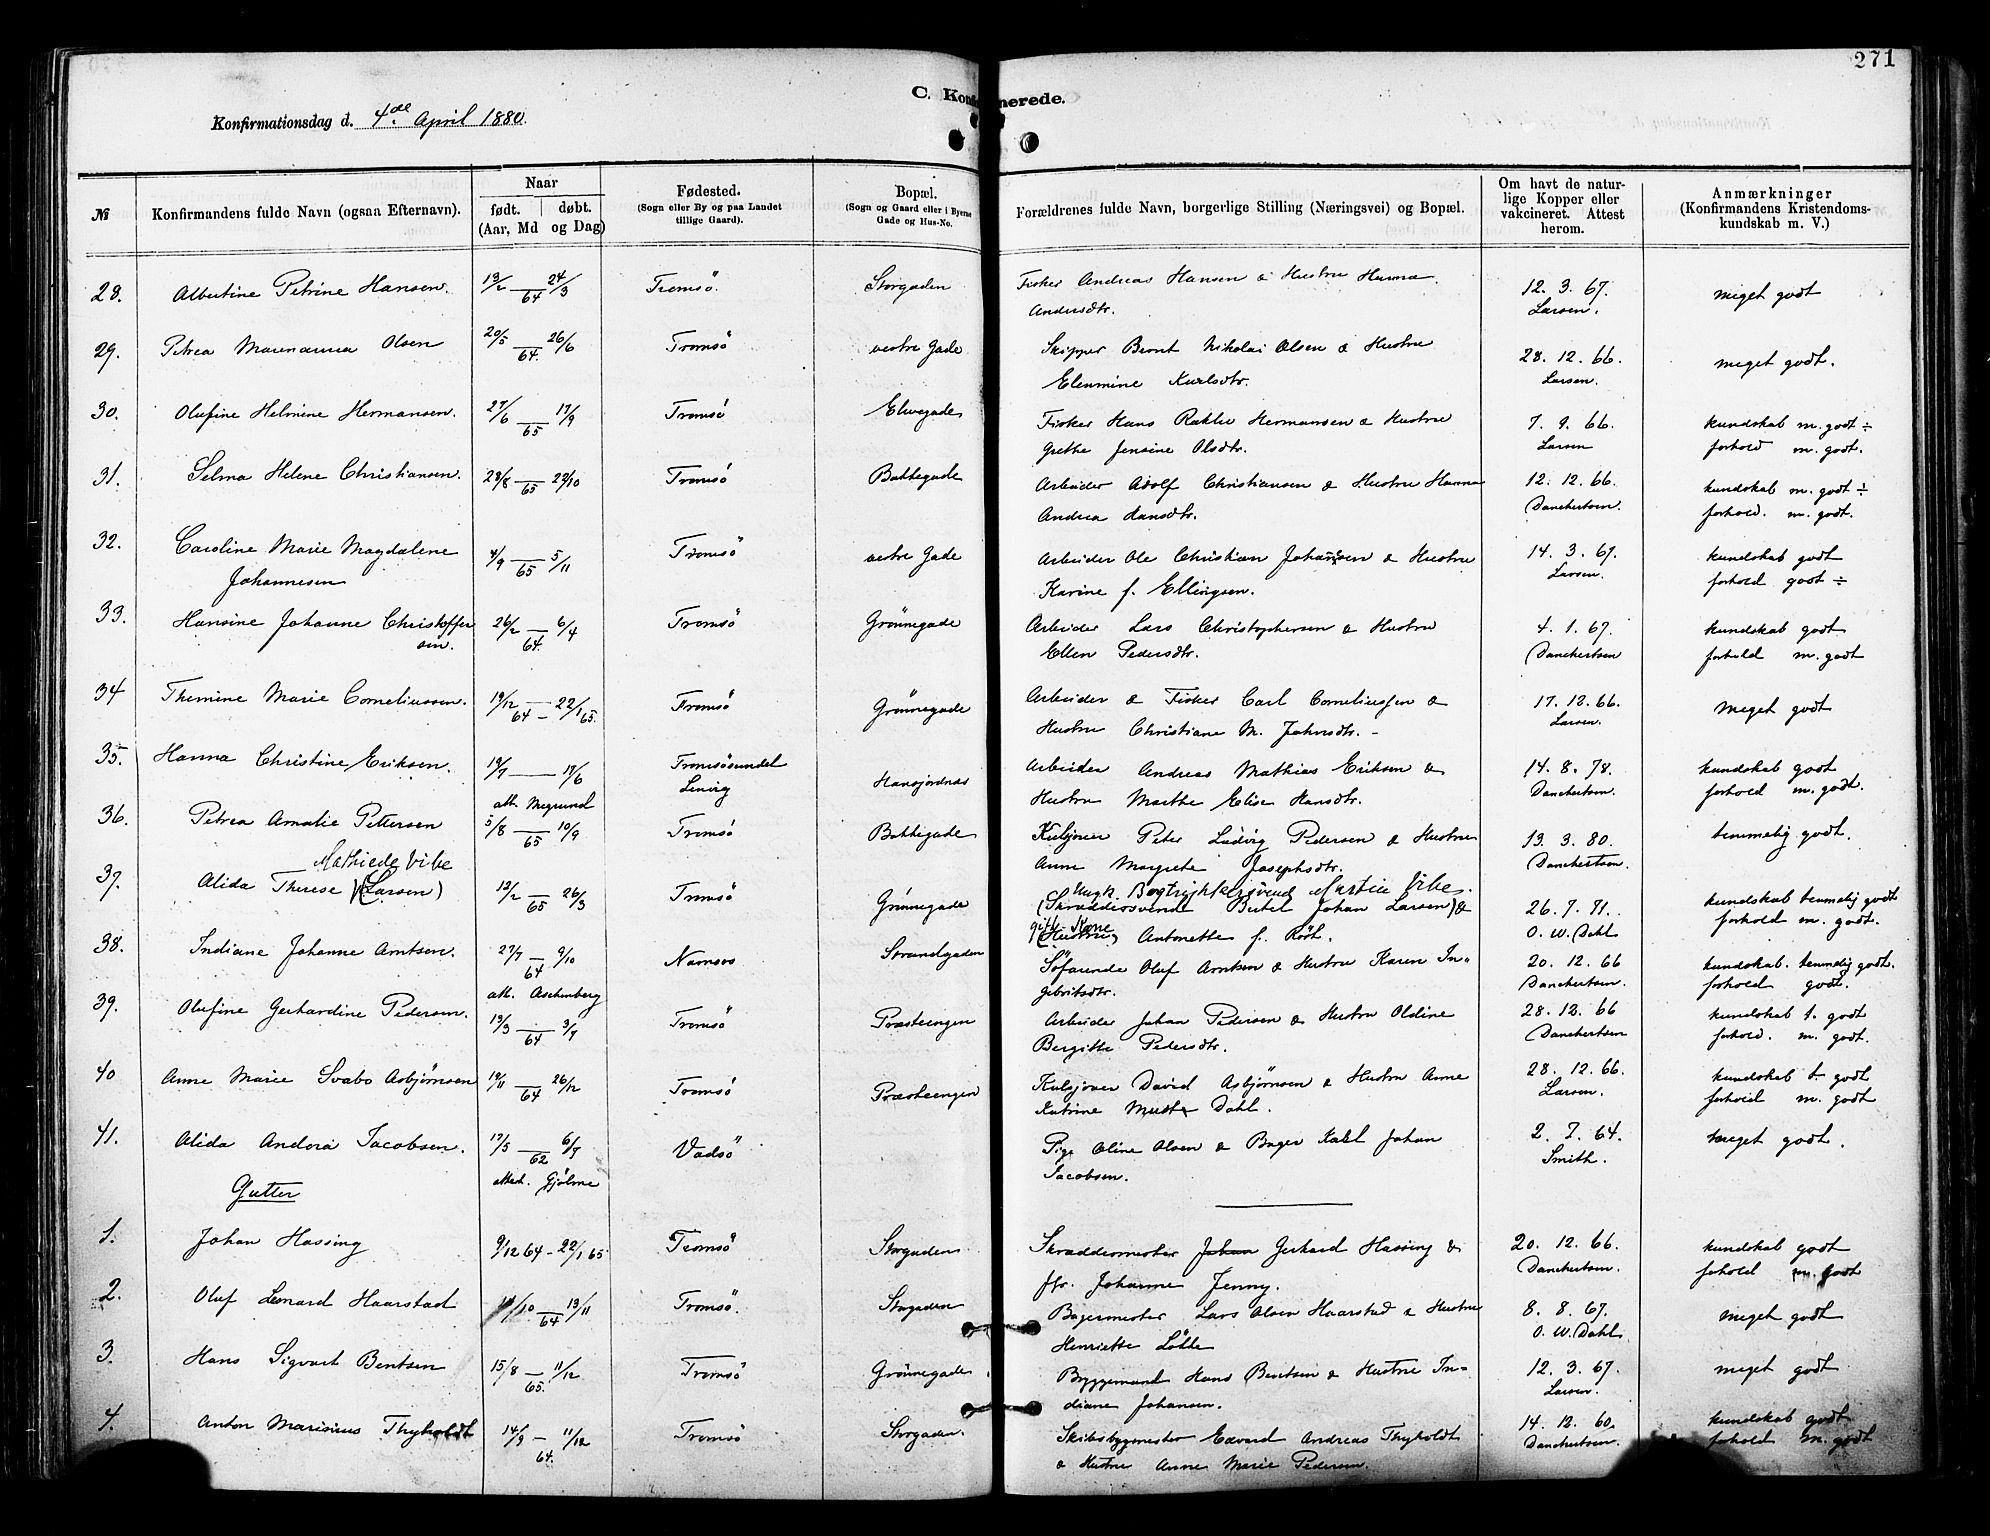 271
C. Konfirmerede.
Konfirmationsdag d. 4de April 1880.
№
Konfirmandens fulde Navn (ogsaa Efternavn).
Naar
født. døbt.
(Aar, Md og Dag)
Fødested.
(Sogn eller By og paa Landet
tillige Gaard).
Bopæl.
(Sogn og Gaard eller i Byerne
Gade og Hus-No.
Forældrenes fulde Navn, borgerlige Stilling (Næringsvei) og Bopæl.
Om havt de natur-
lige Kopper eller
vakcineret. Attest
herom.
Anmærkninger
(Konfirmandens Kristendoms-
kundskab m. V.)
28. Albertine Petrine Hansen. 19/2 64 24/3 Tromsö. Storgaden Fisker Andreas Hansen & Hustru Hanna 12. 3. 67. meget godt
Andersdtr. Larsen.
29. Petrea Marenanna Olsen 20/5 64. 26/6 Tromsö vestre Gade Skipper Bernt Nikolai Olsen & Hustru 28. 12. 66. meget godt.
Elenmine Karlsdtr. Larsen.
30. Olufine Helmine Hermansen. 27/6 65 17/9 Tromsö Elvegade Fisker Hans Hermansen & Hustru 7. 9. 66. kundskab m. godt ÷
Grethe Jensine Olsdtr. Larsen forhold m. godt.
31. Selma Helene Christiansen. 28/8 65 22/10 Tromsö Bakkegade Arbeider Adolf Christiansen & Hustru Hanna 12. 12. 66. kundskab m. godt ÷
Andrea Hansdtr. Danchertsen. forhold. m. godt.
32. Caroline Marie Magdalene 4/9 65 5/11 Tromsö vestre Gade Arbeider Ole Christian Johansen & Hustru 14. 3. 67. kundskab godt
Johannesen Karine f. Ellingsen. Larsen. forhold godt ÷
33. Hansine Johanne Christoffer 26/2 64. 6/4 Tromsö Grönnegade Arbeider Lars Christophersen & Hustru 4. 1. 67. kundskab godt
sen. Ellen Pedersdtr. Danchertsen forhold m. godt
34 Themine Marie Corneliussen. 19/12 64 - 22/1 65. Tromsö Grönnegade Arbeider & Fisker Carl Corneliussen & 17. 12. 66. meget godt
Hustru Christiane M. Johnsdtr. - Larsen.
35. Hanna Christine Eriksen. 17/6 Tromsösundet Hansjordnæs Arbeider Andreas Mathias Eriksen & 14. 8. 78. kundskab godt
Hustru Marthe Elise Hansdtr. Danchertsen. forhold m. godt.
36. Petrea Amalie Pettersen 5/8 65 10/9 Tromsö Bakkegade Peter Ludvig Pedersen & Hustru 13. 3. 80. temmelig godt.
Anne Margrete Josephsdtr. Danchertsen.
Mathilde Vibe
37. Alida Therese (Larsen) 12/2 65 26/3 Tromsö Grönnegade Ungk. Bogtrykkersvend Martin Vibe.
(Skræddersvend Bertel Johan Larsen) & 26. 7. 71. kundskab temmelig godt
gift Kone
(Hustru) Antonette f. Rört. O. W. Dahl forhold m. godt.
38. Indiane Johanne Arntsen. 27/7 64 9/10 Namsos Strandgaden Söfarende Oluf Arntsen & Hustru Karen In- 20. 12. 66 kundskab. temmelig godt.
att. Aschenberg gebrigtsdtr. Danchertsen. forhold godt.
39. Olufine Gerhardine Pedersen. 19/3 64 3/7 Tromsö Præsteengen Arbeider Johan Pedersen & Hustru Oldine 28. 12. 66 kundskab t. godt
Bergitte Pedersdtr. Danchertsen forhold. m. godt.
40 Anne Marie Svabo Asbjörnsen 19/11 64 26/12 Tromsö Præsteengen David Asbjörnsen & Hustru Anne 28. 12. 66. kundskab t. godt
Katrine Dahl. Larsen. forhold m. godt
41. Alida Andora Jacobsen. 17/5 62 6/7 Vadsö Pige Oline Olsen & Bager Karl Johan 2. 7. 64. meget godt.
attest. Gjölme Jacobsen. Smith.
Gutter
1. Johan Hassing 9/12 64 - 22/1 65 Tromsö Storgaden Skræddermester Johan Gerhard Hassing & 20. 12. 66. kundskab godt
Johanne Jenny. Danchertsen. fohold m. godt
2. Oluf Leonard Haarstad 11/10 64 13/11 Tromsö. Storgaden Bagermester Lars Olsen Haarstad & Hustru 8. 8. 67. meget godt
Henriette Lökke O. W. Dahl
3. Hans Sigvart Bentsen 15/8 65. 11/12 Tromsö Grönnegaden. Byggemand Hans Bentsen & Hustru In- 12. 3. 67. meget godt
diane Johansen. Larsen.
4. Anton Marisius Thyholdt 14/9 64. 11/12 Tromsö Storgaden. Skibsbygmester Edvard Andreas Thyholdt 14. 12. 60. kundskab godt
& Hustru Anne Marie Pedersen. Danchertsen. forhold m. godt